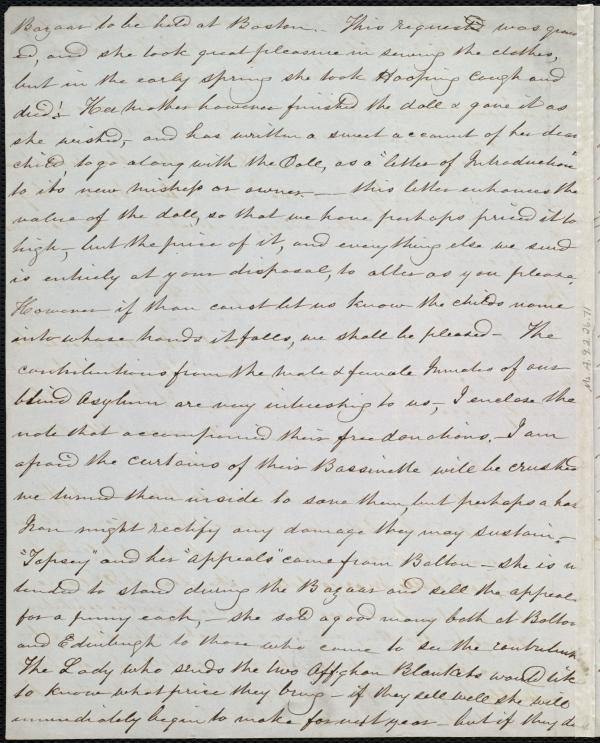 Bazaar to be held at Boston. – This request was gran
ed, and she took great pleasure in sewing the clothes,
but in the early spring she took Hooping Cough and
died! – Her Mother however finished the doll & gave it as
she wished, – and has written a sweet account of her dear
child, to go along with the Doll, as a "letter of Introduction"
to its new mistress or owner. – this letter enhances the
value of the doll, so that we have perhaps priced it to
high, – but the price of it, and everything else we send
is entirely at your disposal, to alter as you please,
However if thou canst let us know the childs name
into whose hands it falls, we shall be pleased – The
contributions from the Male & female Inmates of our
blind Asylum are very interesting to us, – I enclose the
note that accompanied their free donations, – I am
afraid the curtains of their Bassinette will be crushed
we turned them inside to save them, but perhaps a hot
Iron might rectify any damage they may sustain. –
"Topsey" and her "appeals" came from Bolton – she is in
tended to stand during the Bazaar and sell the appeal
for a penny each, – she sold a good many both at Bolton
and Edinburgh to those who came to see the contribut
The Lady who sends the two Affghan Blankets would like
to know what price they bring – if they sell well she will
immediately begin to make for next year – but if they do
Ms. A.9.2.26.71